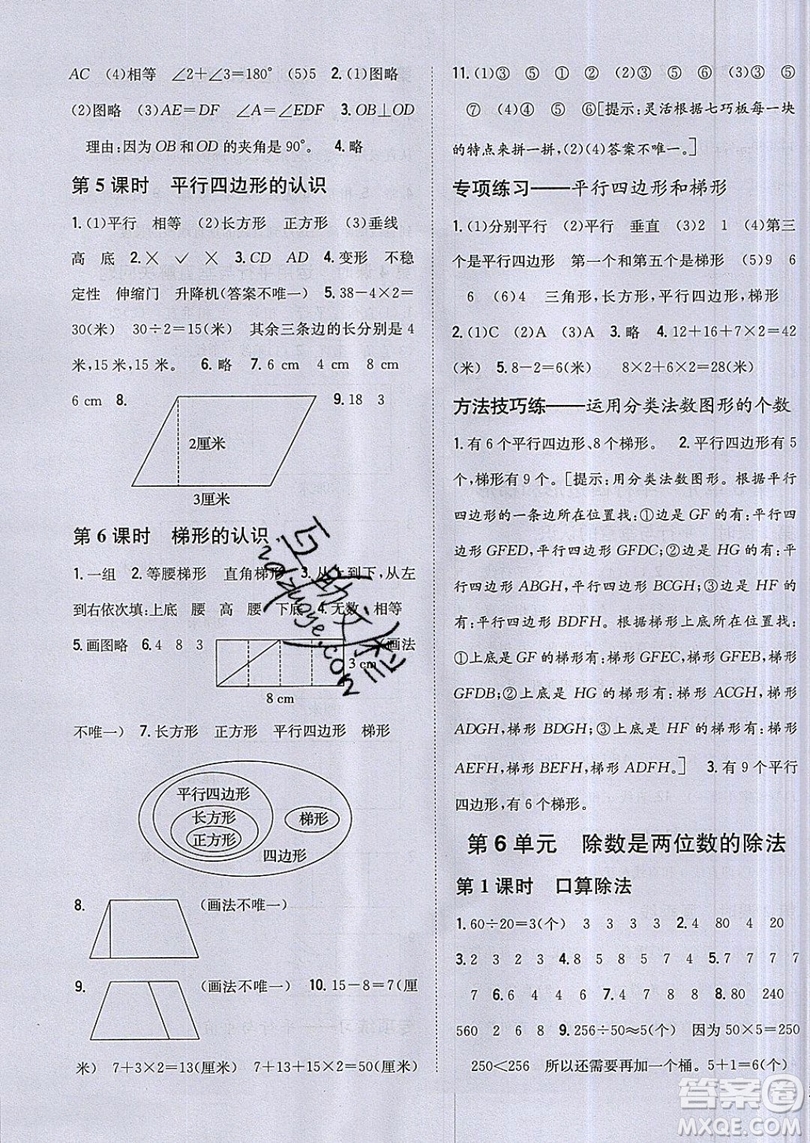 AC (4)相等 ∠2+∠3=180° (5)5 2.(1)图略
(2)图略 (3)AE=DF ∠A=∠EDF 3.OB⊥OD
理由:因为OB和OD的夹角是90°。 4.略
第5课时 平行四边形的认识
1.(1)平行 相等 (2)长方形 正方形 (3)垂线
高 底 2.× ✓ ✓ × 3.CD AD 4.变形 不稳
定性 伸缩门 升降机(答案不唯一) 5.38-4×2=
30(米) 30÷2=15(米) 其余三条边的长分别是4
米,15米,15米。 6.略 7.6 cm 4 cm 8 cm
6 cm 8. 9.18 3
2厘米
3厘米
第6课时 梯形的认识
1.一组 2.等腰梯形 直角梯形 3.从上到下,从左
到右依次填:上底 腰 高 腰 下底 4.无数 相等
5.画图略 6.4 8 3 (画法
3 cm
8 cm
不唯一) 7.长方形 正方形 平行四边形 梯形
平行四边形
长方形
正方形
梯形
四边形
8. (画法不唯一)
9. (画法不唯一) 10.15-8=7(厘
米) 7+3×2=13(厘米) 7+13+15×2=50(厘米)
11.(1)③ ⑤ ① ② (2)④ ⑥ ③ ③ ⑤
⑦ (3)④ ⑥ (4)⑥ ⑤[提示:灵活根据七巧板每一块
的特点来拼一拼,(2)(4)答案不唯一。]
专项练习——平行四边形和梯形
1.(1)分别平行 平行 垂直 (3)2 1 (4)第三
个是平行四边形 第一个和第五个是梯形 (5)9 6
6 (6)4 三角形,长方形,平行四边形,梯形
2.(1)C (2)A (3)A 4.12+16+7×2=42
(米) 5.8-2=6(米) 8×2+6×2=28(米)
方法技巧练——运用分类法数图形的个数
1.有6个平行四边形、8个梯形。 2.平行四边形有5
个,梯形有9个。[提示:用分类法数图形。根据平行
四边形的一条边所在位置找:①上底是GF的有:平行
四边形GFED,平行四边形GFDC;②上底是HG的有:平行
四边形ABGH,平行四边形BCGH;③上底是HF的有:平行
四边形BDFH。根据梯形的上底所在位置
找:①上底是GF的有:梯形GFEC,梯形GFEB,梯形
GFDB;②上底是HG的有:梯形ACGH,梯形
ADGH,梯形BDGH;③上底是HF的有:梯形
AEFH,梯形BEFH,梯形ADFH。] 3.有9个平行
四边形,有6个梯形。
第6单元 除数是两位数的除法
第1课时 口算除法
1.60÷20=3(个) 3 3 3 3 2.4 80 4 20
3.2 3 7 7 2 2 8 8 4.4 5.3 3 7
7 7 6 6 6 6 7.2 8.70 80 240
560 2 68 9.256÷50≈5(个) 因为50×5=250
250<256 所以还需要再加一个桶。5+1=6(个)
互助文库
zuoye.com
答案圈
MXQE.COM